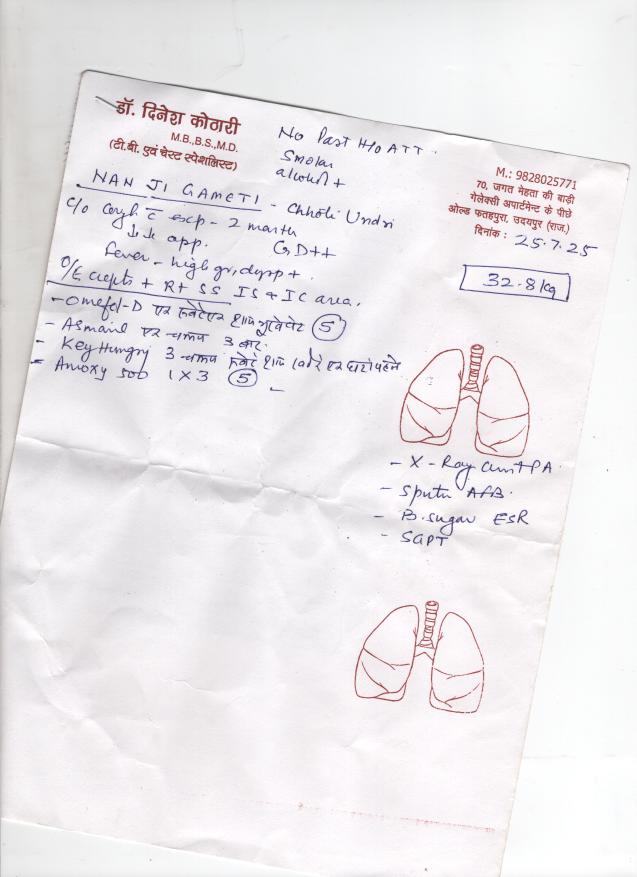 डॉ. दिनेश कोठारी
M.B.,B.S.,M.D.
(टी.बी. एवं चेस्ट स्पेशलिस्ट)
No Past H/O ATT.
Smoker
alcohol +
M.: 9828025771
70, जगत मेहता की बाड़ी
गेलेक्सी अपार्टमेन्ट के पीछे
ओल्ड फतहपुरा, उदयपुर (राज.)
दिनांक : 25.7.25
NAN JI GAMETI - Chhoti Undri
32.8 kg
C/o Cough c exp - 2 month
↓↓ app. GD++
fever - high gr, dysp +.
O/E crepts + Rt SS IS & IC area.
- Omefol-D एक सवेरे एक शाम 5
- Asmanil एक चम्मच 3 बार
- KeyHungry 3 - चम्मच सवेरे शाम
- Amoxy 500 1 X 3 5
- X-Ray PA
- Sputum AFB.
- B. sugar ESR
- SGPT